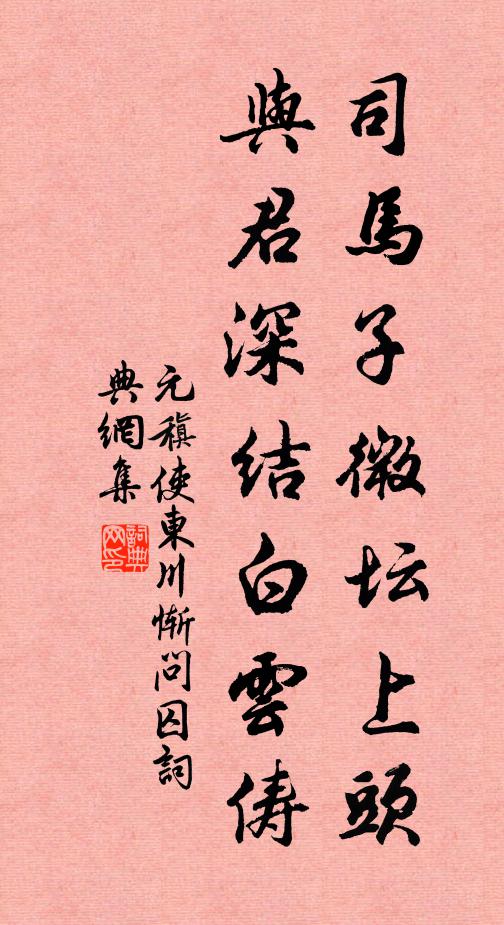 司馬子微坛上頭
與君深結白雲儔
元稹使東川慚問囚詞
典網集
詞典网印